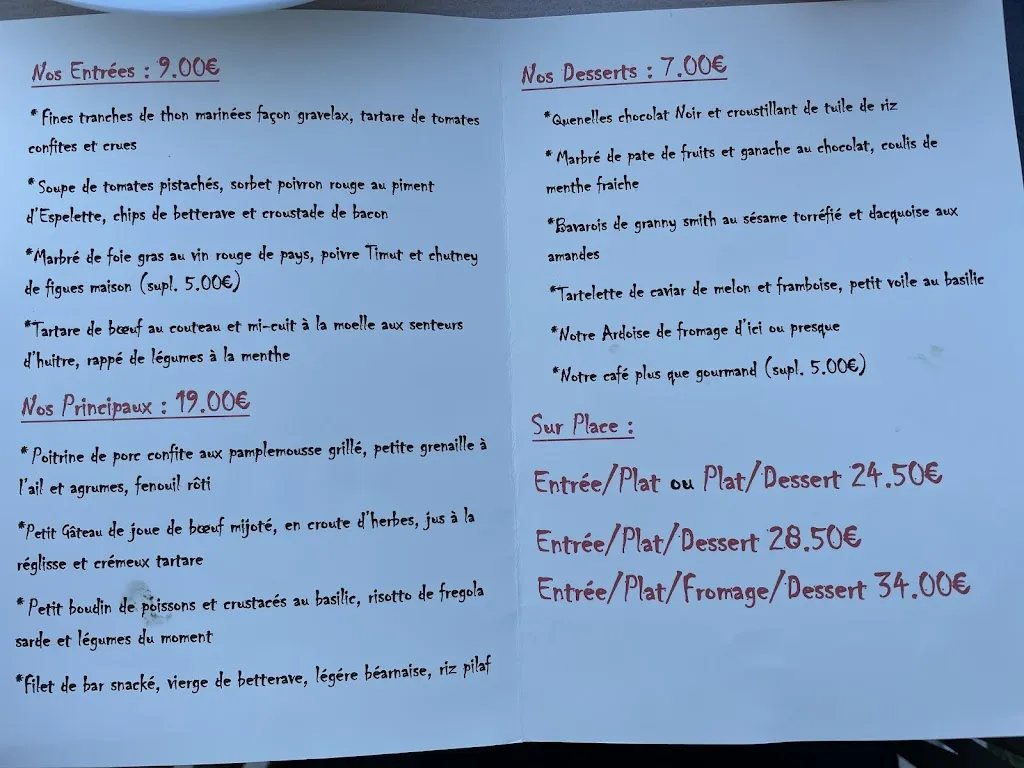 Nos Entrées : 9.00€
*Fines tranches de thon marinées façon gravelax, tartare de tomates
confites et crues
*Soupe de tomates pistachés, sorbet poivron rouge au piment
d'Espelette, chips de betterave et croustade de bacon
*Marbré de foie gras au vin rouge de pays, poivre Timut et chutney
de figues maison (supl. 5.00€)
*Tartare de bœuf au couteau et mi-cuit à la moelle aux senteurs
d'huitre, rappé de légumes à la menthe
Nos Principaux : 19.00€
* Poitrine de porc confite aux pamplemousse grillé, petite grenaille à
l'ail et agrumes, fenouil rôti
*Petit Gâteau de joue de bœuf mijoté, en croute d'herbes, jus à la
réglisse et crémeux tartare
* Petit boudin de poissons et crustacés au basilic, risotto de fregola
sarde et légumes du moment
*Filet de bar snacké, vierge de betterave, légére béarnaise, riz pilaf
Nos Desserts : 7.00€
*Quenelles chocolat Noir et croustillant de tuile de riz
* Marbré de pate de fruits et ganache au chocolat, coulis de
menthe fraiche
*Bavarois de granny smith au sésame torréfié et dacquoise aux
amandes
*Tartelette de caviar de melon et framboise, petit voile au basilic
*Notre Ardoise de fromage d'ici ou presque
*Notre café plus que gourmand (supl. 5.00€)
Sur Place :
Entrée/Plat ou Plat/Dessert 24.50€
Entrée/Plat/Dessert 28.50€
Entrée/Plat/Fromage/Dessert 34.00€